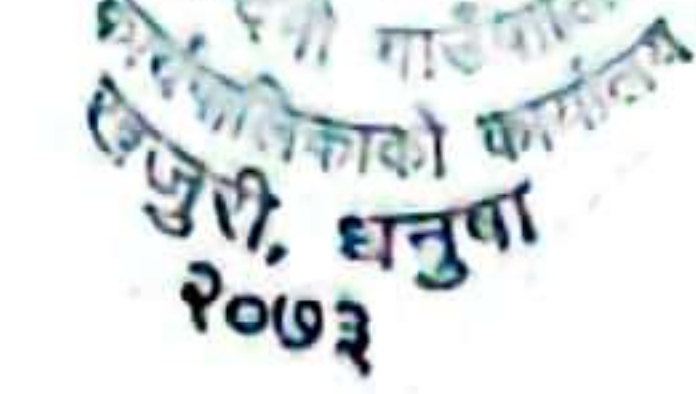 गाउँपालि
कार्यपालिकाको कार्यालय
खजुरी, धनुषा
२०७३